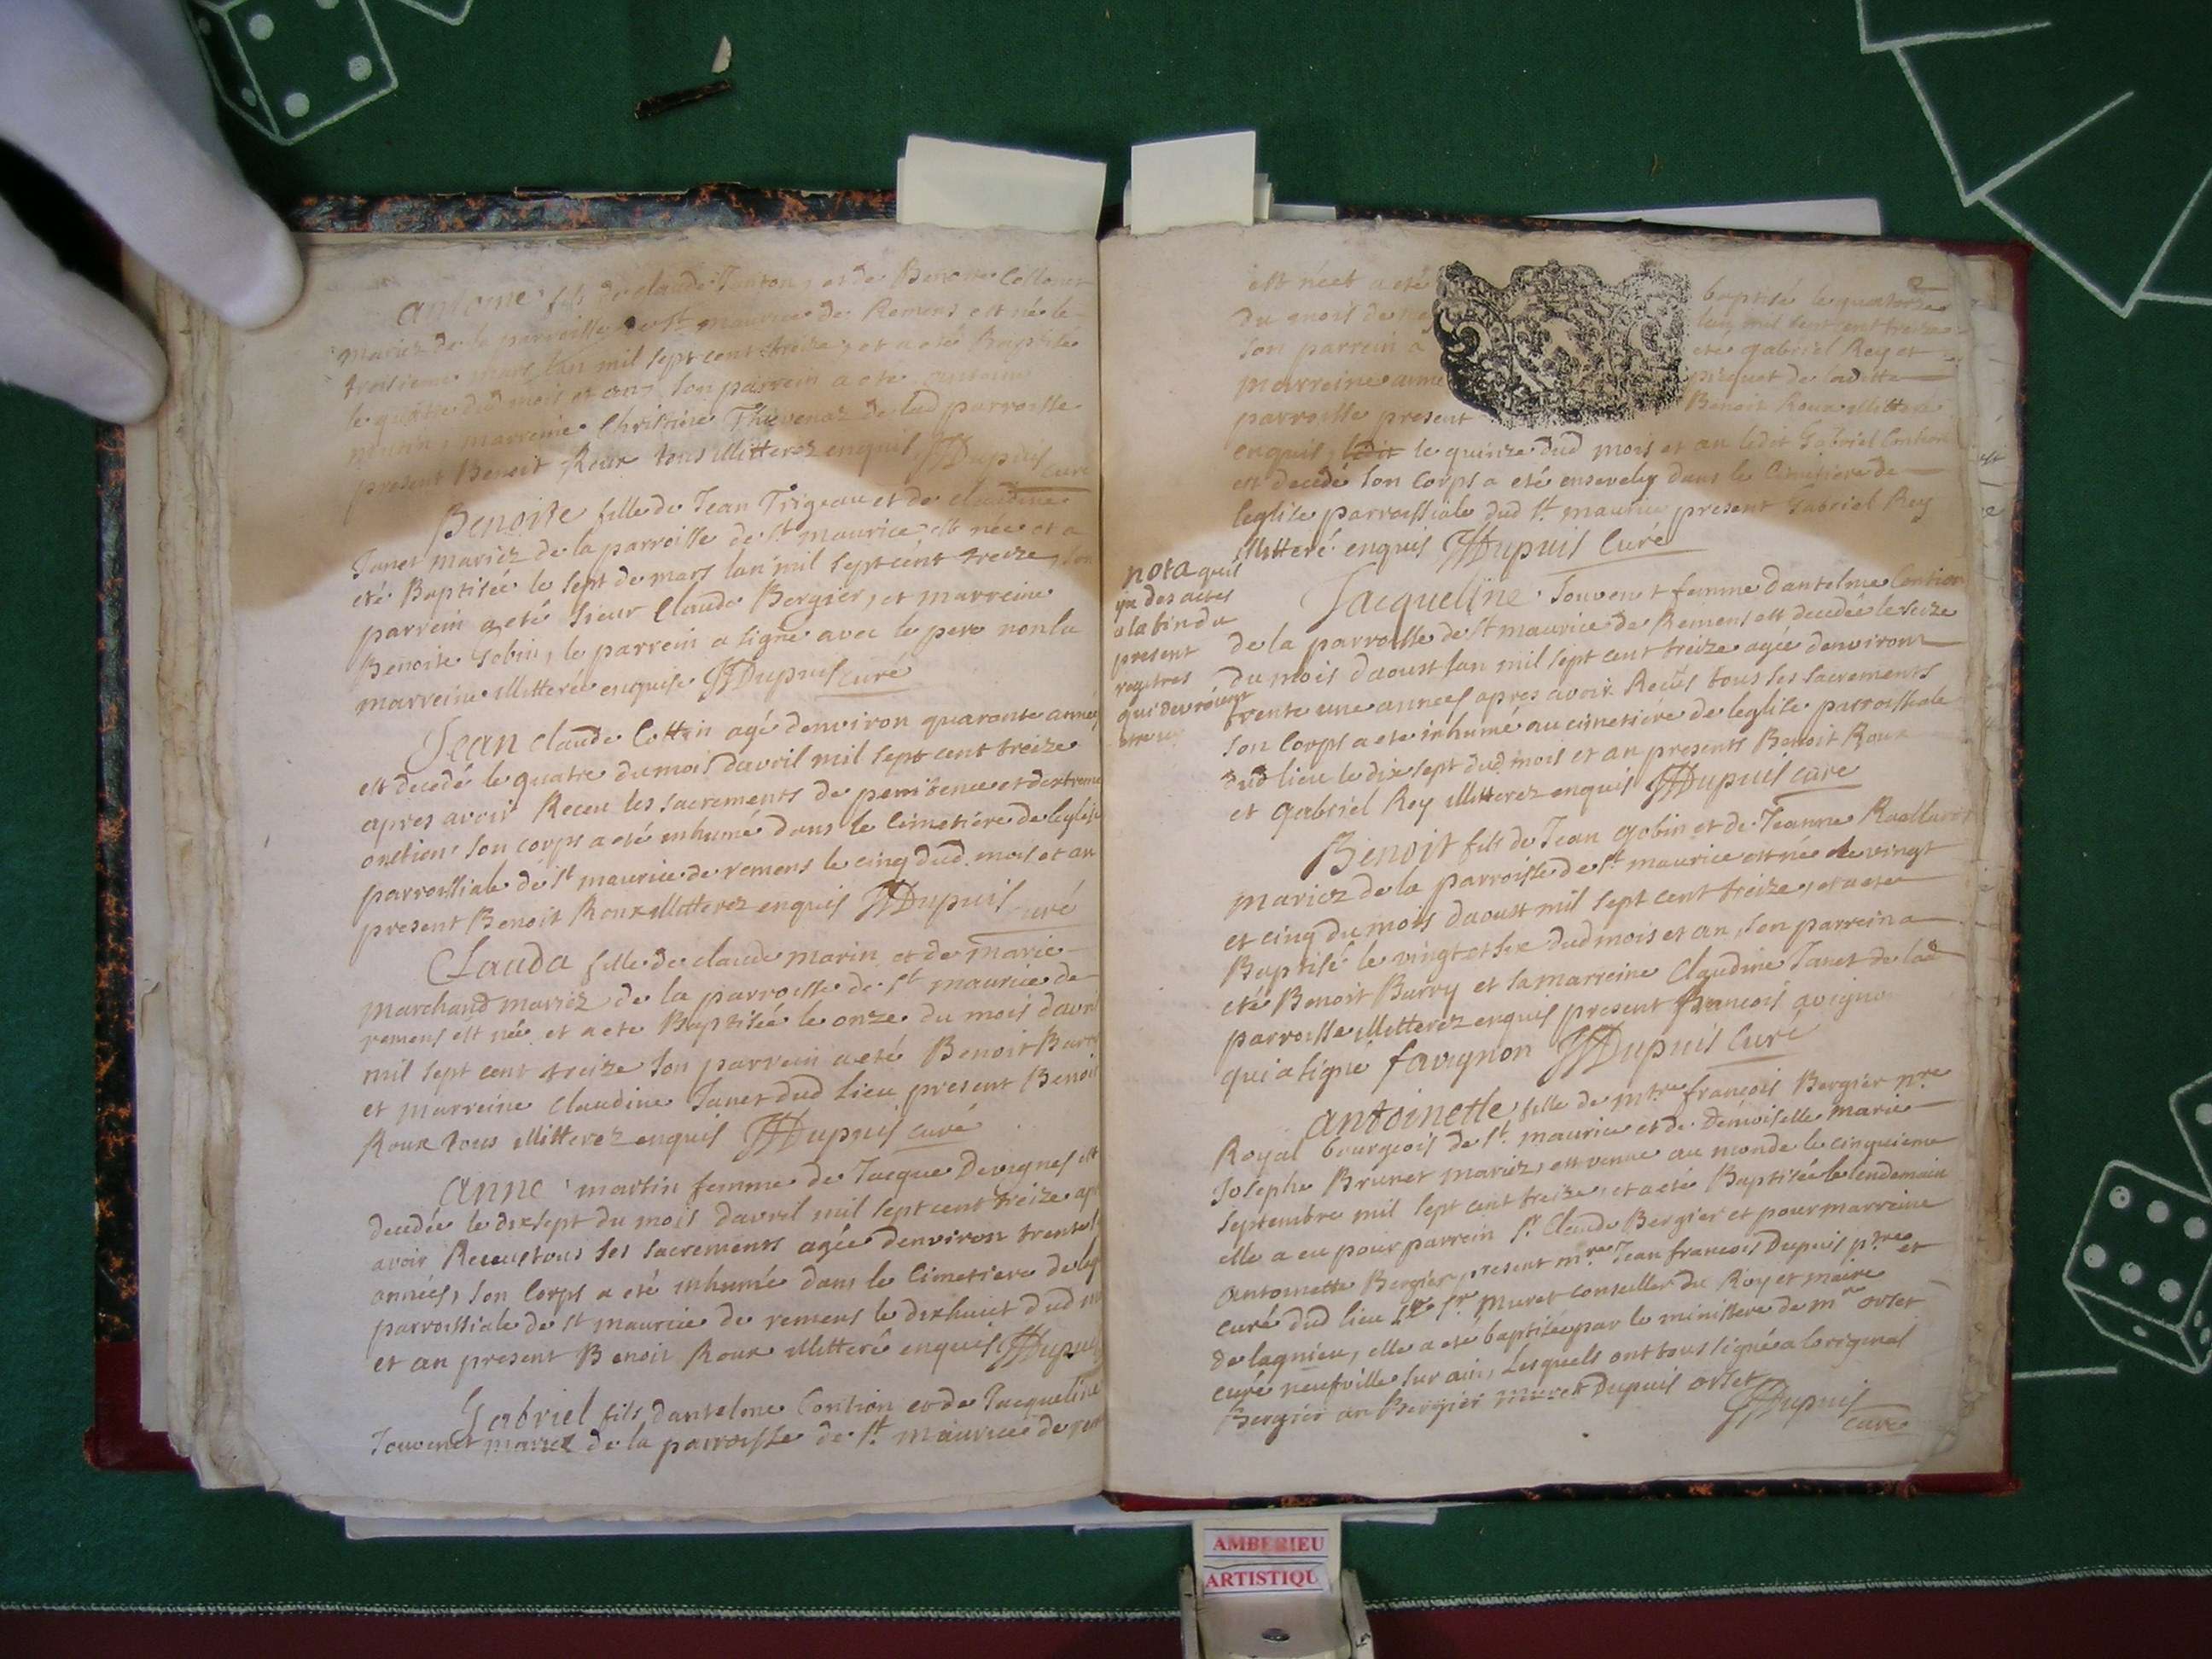 antoine fils de claude et de Benoite
mariez de la parroisse de St maurice de Remens est né le
troisieme mars lan mil sept cent treize et a eté Baptisé
le quatre dud mois et an, son parrein a eté antoine
marreine Christine Thevenaz de lad parroisse
present Benoit Roux tous illitterez enquis JfDupuis curé
Benoite fille de Jean Trigeau et de claudine
Janet mariez de la parroisse de St maurice est née et a
eté Baptisée le sept de mars lan mil sept cent treize, son
parrein a eté sieur Claude Bergier, et marreine
Benoite Gobin, le parrein a signé avec le pere non la
marreine illitterée enquise JfDupuis curé
Jean Claude Cottin agé denviron quarante années
est decedé le quatre du mois davril mil sept cent treize
apres avoir Receu les sacrements de penitence et dextreme
onction son corps a eté inhumé dans le Cimetiere de leglise
parroissiale de St maurice de remens le cinq dud. mois et an
present Benoit Roux illitterez enquis JfDupuis curé
Clauda fille de claude marin et de marie
marchand mariez de la parroisse de St maurice de
remens est née et a eté Baptisée le onze du mois davril
mil sept cent treize son parrein a eté Benoit
et marreine Claudine Janet dud lieu present Benoit
Roux tous illitterez enquis JfDupuis curé
Anne martin femme de Jacque Devignes est
decedée le dix sept du mois davril mil sept cent treize
avoir Receu tous ses sacrements agée denviron trente
années, son Corps a eté inhumé dans le Cimetiere de
parroissiale de St maurice de remens le dixhuict dud
et an present Benoit Roux illitteré enquis JfDupuis
Gabriel fils dantelme Contion et de Jacqueline
Jouvenet mariez de la parroisse de St. maurice de
2
est né et a eté baptisé le quatorze
du mois de lan mil sept cent treize
son parrein a eté gabriel Rey et
marreine anne piquet de laditte
parroisse present Benoit Roux illitteré
enquis, ledit le quinze dud mois et an ledit Gabriel Contion
est decedé son Corps a eté ensevely dans le Cimetiere de
leglise parroissiale dud St. maurice present Gabriel Rey
illitteré enquis JfDupuis Curé
nota quil
ya des actes
a la fin du
present
registres
qui devroient
Jacqueline Jouvenet femme dantelme Contion
de la parroisse de St maurice de Remens est decedée le seize
du mois daoust lan mil sept cent treize agée denviron
trente une années apres avoir Receus tous ses sacrements
son Corps a eté inhumé au cimetiére de leglise parroissiale
dud lieu le dix sept dud. mois et an presents Benoit Roux
et gabriel Rey illitterez enquis JfDupuis curé
Benoit fils de Jean gobin et de Jeanne
mariez de la parroisse de St. maurice est né le vingt
et cinq du mois daoust mil sept cent treize, et a eté
Baptisé le vingt et six dud mois et an, son parrein a
eté Benoit Barry et sa marreine Claudine Janet de lad
parroisse illitterez enquis present francois avignon
qui a signé favignon JfDupuis Curé
antoinette fille de mtre francois Bergier nre
Royal bourgeois de St. maurice et de Demoiselle marie
Josephe Brunet mariez, est venue au monde le cinquieme
septembre mil sept cent treize, et a eté Baptisée le lendemain
elle a eu pour parrein Sr. Claude Bergier et pour marreine
antoinette Bergier, present mre. Jean francois Dupuis ptre et
curé dud lieu Sr. Muret conseiller du Roy et maire
de lagnieu, elle a eté baptisée par le ministere de mre orset
curé neufville sur ain, Lesquels ont tous signé a loriginal
Bergier an Bergier Muret Dupuis orset
JfDupuis
curé
AMBERIEU
ARTISTIQU